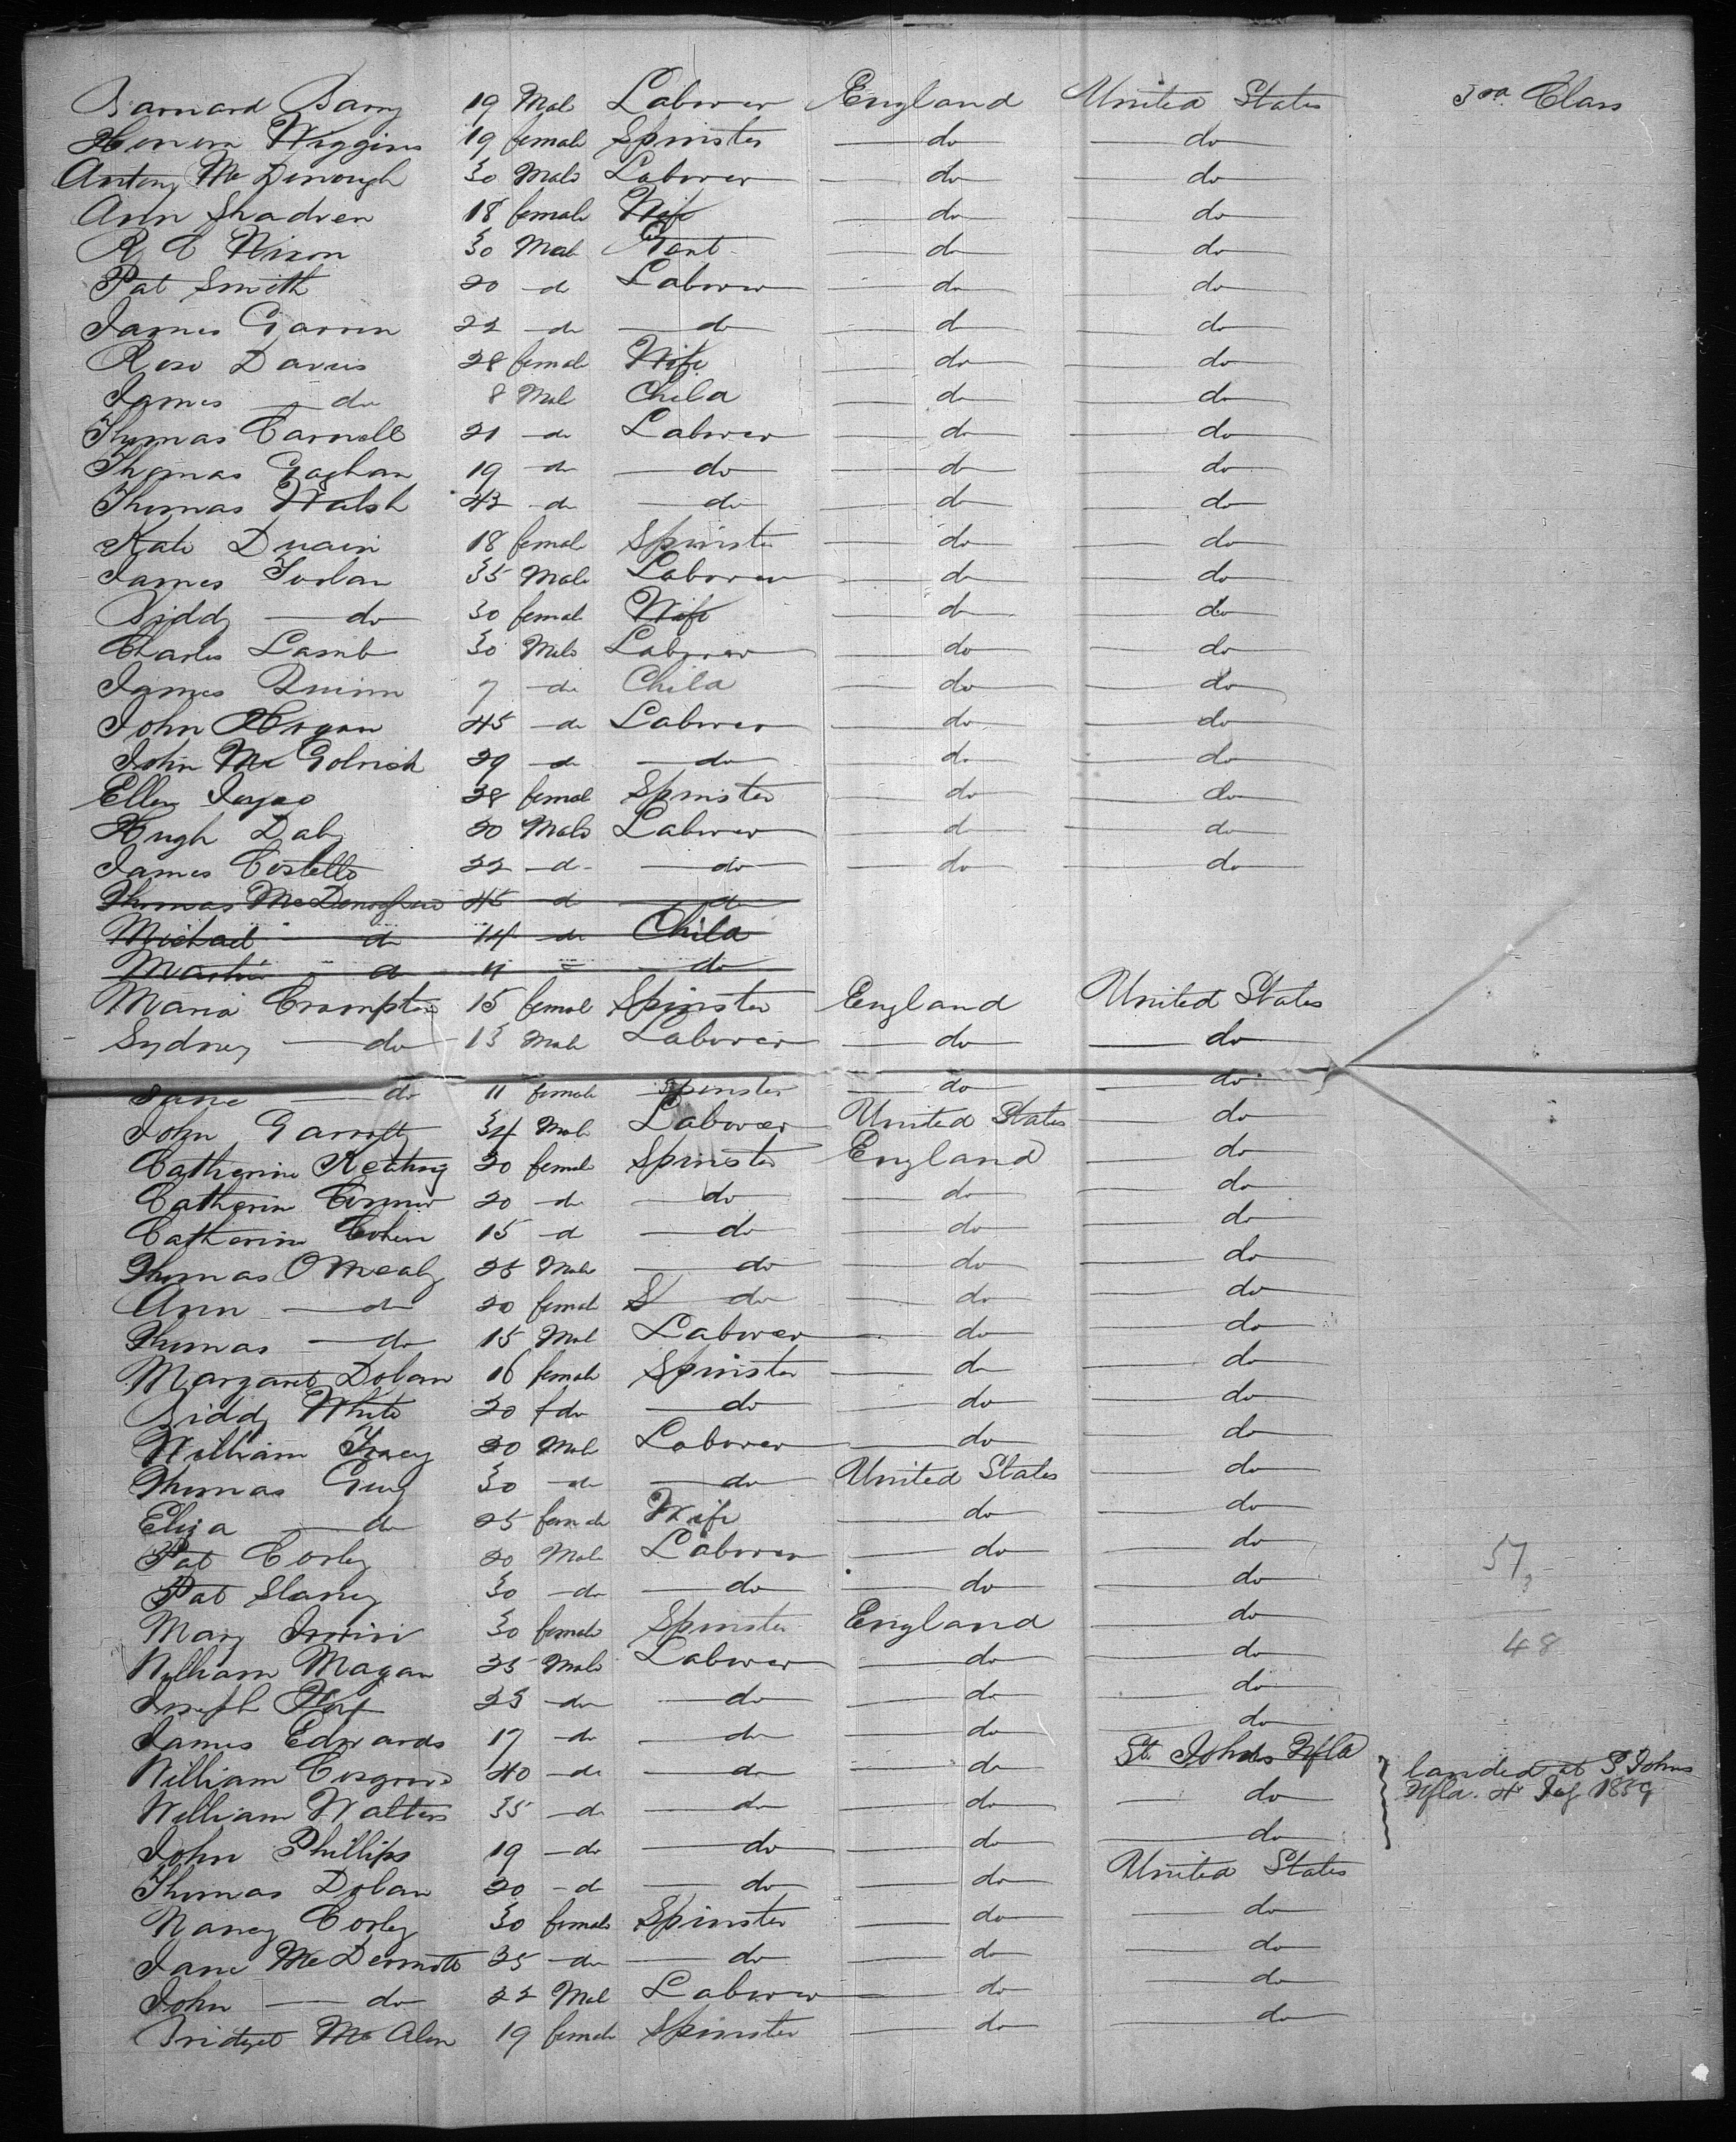 Barnard Barry 19 Male Laborer England United States 3rd Class
Honora Wiggins 19 female Spinster do do
Antony McDonough 30 Male Laborer do do
Ann Shadven 18 female Wife do do
R C Nixon 30 Male Gent do do
Pat Smith 20 do Laborer do do
James 22 do do do do
Rose Davis 28 female Wife do do
James do 8 Male Child do do
Thomas Carnell 21 do Laborer do do
Thomas Gaghan 19 do do do do
Thomas Walsh 42 do do do do
Kate 18 female Spinster do do
James 35 Male Laborer do do
Biddy do 30 female Wife do do
Charles Lamb 30 Male Laborer do do
James Quinn 7 do Child do do
John Hogan 45 do Laborer do do
John McGolrick 29 do do do do
Ellen 28 female Spinster do do
Hugh Daly 20 Male Laborer do do
James Costello 22 do do do do
Thomas 45 do do
Michael do 14 do Child
Martin do 11 do
Maria Crompton 15 female Spinster England United States
Sydney do 13 Male Laborer do do
Jane do 11 female Spinster do do
John Garrotty 34 Male Laborer United States do
Catherine Keating 20 female Spinster England do
Catherine Connor 20 do do do do
Catherine Cohen 15 do do do do
Thomas OMealy 25 Male do do do
Ann do 20 female S do do do
Thomas do 15 Male Laborer do do
Margaret Dolan 16 female Spinster do do
Biddy White 20 f do do do do
William Tracy 20 Male Laborer do do
Thomas 30 do do United States do
Eliza do 25 female Wife do do
Pat Corley 20 Male Laborer do do
Pat Slaney 30 do do do do
57
Mary Irwin 30 female Spinster England do
48
William Magan 25 Male Laborer do do
Joseph 23 do do do do
James Edwards 17 do do do do
William Cosgrove 40 do do do St Johns Nfld landed at S Johns
William Walters 35 do do do do Nfld. 1859
John Phillips 19 do do do do
Thomas Dolan 20 do do do United States
Nancy Corley 30 female Spinster do do
Jane McDermott 25 do do do do
John do 22 Male Laborer do do
Bridget 19 female Spinster do do